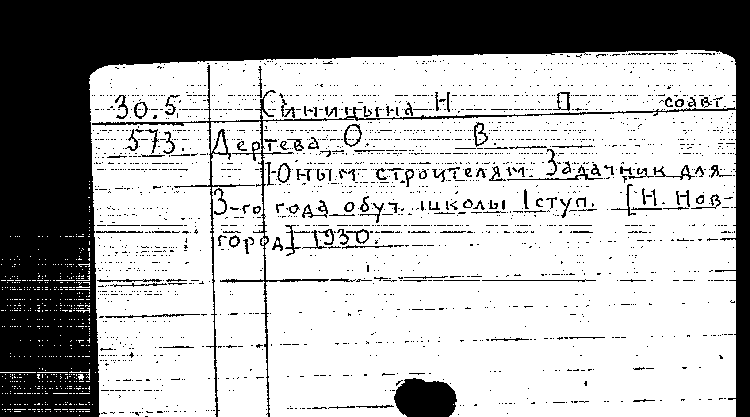 30.5. Синицына, Н. П. , соавт.
573. Дертева, О. В.
Юным строителям. Задачник для
3-го года обуч. школы I ступ. [Н. Нов-
город] 1930.